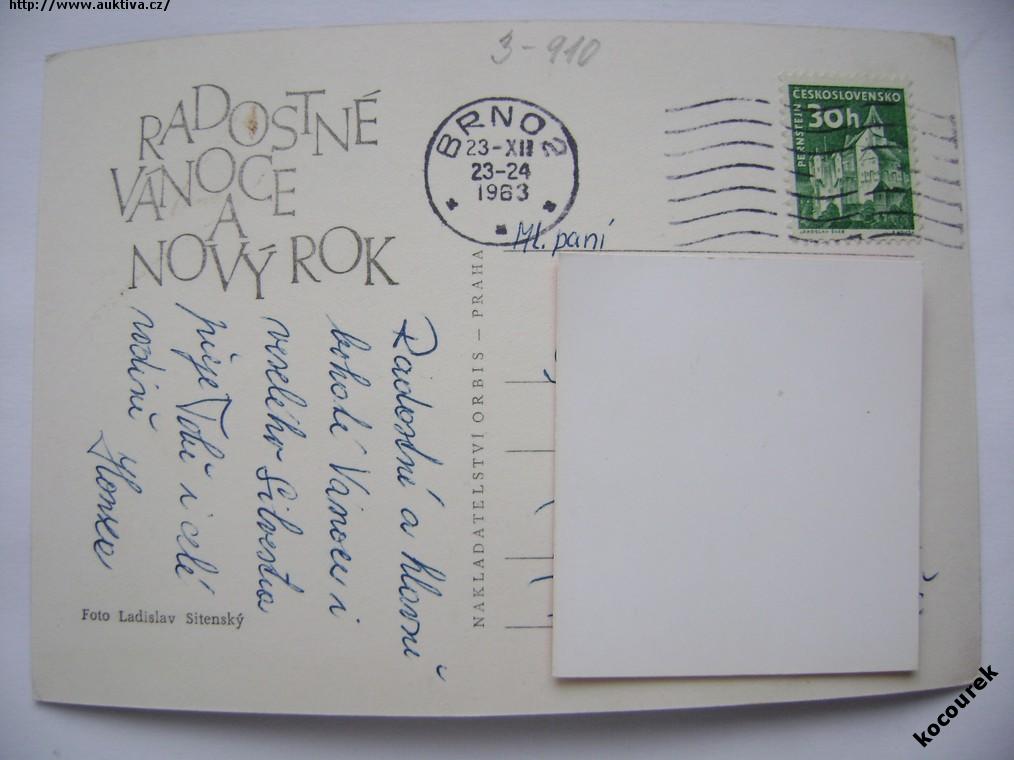 http://www.auktiva.cz/
3-910
RADOSTNÉ
VÁNOCE
A
NOVÝ ROK
BRNO 2
23-XII
23-24
1963
ČESKOSLOVENSKO
30h
PERNŠTEJN
Ml. paní
Radostné a hlavně
bohaté Vánoce i
veselého Silvestra
přeje Tobě i celé
rodině
NAKLADATELSTVÍ ORBIS — PRAHA
Foto Ladislav Sitenský
kocourek